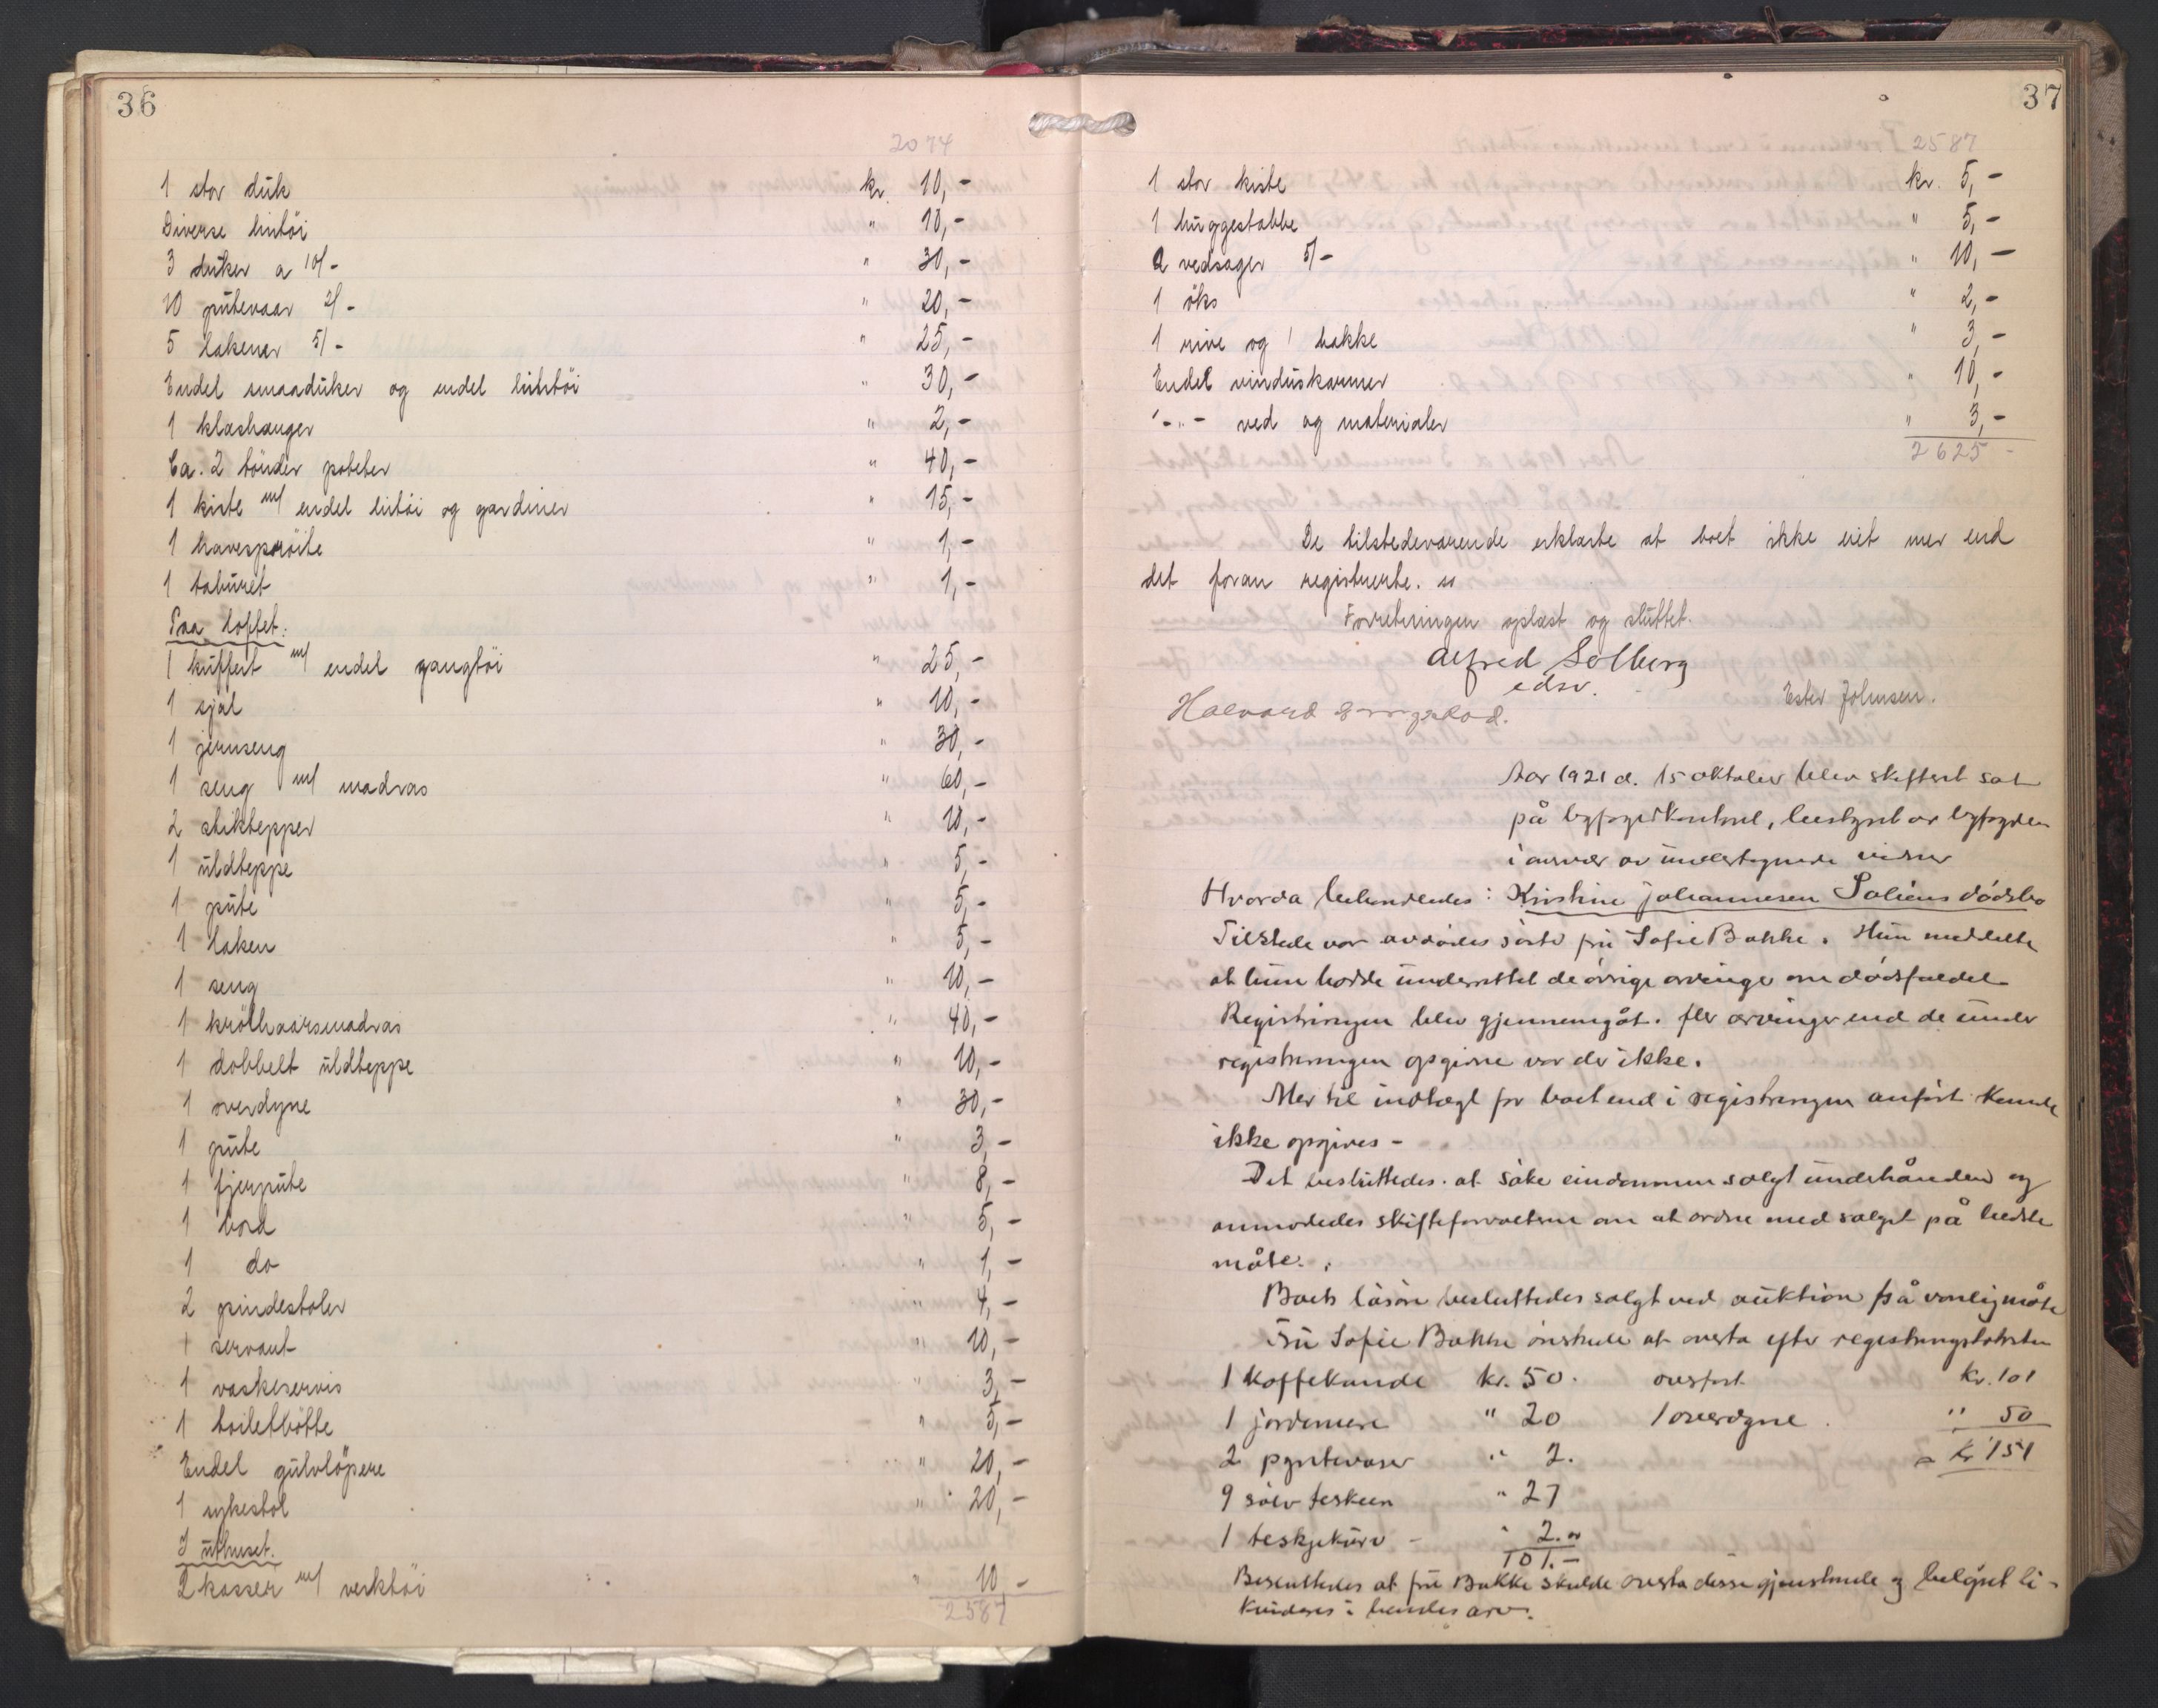 36
2074
1 stor duk kr. 10,-
Diverse lintöi " 10,-
3 duker a 10/- " 30,-
10 putevaar 2/- " 20,-
5 lakener 5/- " 25,-
Endel smaaduker og endel lintöi " 30,-
1 kleshenger " 2,-
Ca. 2 tönder poteter " 40,-
1 kiste m/ endel lintöi og gardiner " 15,-
1 havespröite " 1,-
1 taburet " 1,-
Paa loftet:
1 kuffert m/ endel gangtöi " 25,-
1 sjal " 10,-
1 jernseng " 30,-
1 seng m/ madras " 60,-
2 stiktepper " 10,-
1 uldteppe " 5,-
1 pute " 5,-
1 laken " 5,-
1 seng " 10,-
1 krölhaarsmadras " 40,-
1 dobbelt uldteppe " 10,-
1 overdyne " 30,-
1 pute " 3,-
1 fjerpute " 8,-
1 bord " 5,-
1 do " 1,-
2 pindestoler " 4,-
1 servant " 10,-
1 vaskeservis " 3,-
1 toiletbötte " 5,-
Endel gulvlöpere " 20,-
1 sykestol " 20,-
I uthuset.
2 kasser m/ verktöi " 10,-
2587
37
2587
1 stor kiste kr. 5,-
1 huggestabbe " 5,-
2 vedsager 5/- " 10,-
1 öks " 2,-
1 rive og 1 hakke " 3,-
Endel vinduskarmer " 10,-
-"- ved og materialer " 3,-
2625 -
De tilstedeværende erklærte at boet ikke eiet mer end
det foran registrerte.
Forretningen oplæst og sluttet.
Alfred Solberg
edsv.
Ester Johnsen.
Halvard
Aar 1921 d. 15 oktober blev skifteret sat
på byfogedkontoret, bestyret av byfogden
i nærvær av undertegnede vidner
Hvorda behandledes: Kristine Johannesen Soliens dödsbo
Tilstede var avdødes søster fru Sofie Bakke. Hun meddelte
at hun hadde underrettet de øvrige arvinger om dødsfaldet.
Registringen blev gjennemgåt. fler arvinger end de under
registreringen opgivne var der ikke.
Mer til indtægt for boet end i registringen anført kunde
ikke opgives -
Det besluttedes at søke eiendommen solgt underhånden og
anmodedes skifteforvalteren om at ordne med salget på bedste
måte.
Boets løsøre besluttedes solgt ved auktion på vanlig måte
Fru Sofie Bakke ønskede at overta efter registringstaksten
1 Kaffekande kr. 50. overført kr. 101
1 jordemere " 20 1 overdyne . " 50
2 pyntevaser " 2. = kr 151
9 sølv teskeer " 27
1 teskjekurv - " 2.
101.-
Besluttedes at fru Bakke skulde overta disse gjenstande og beløpet li-
kvideres i hendes arv.